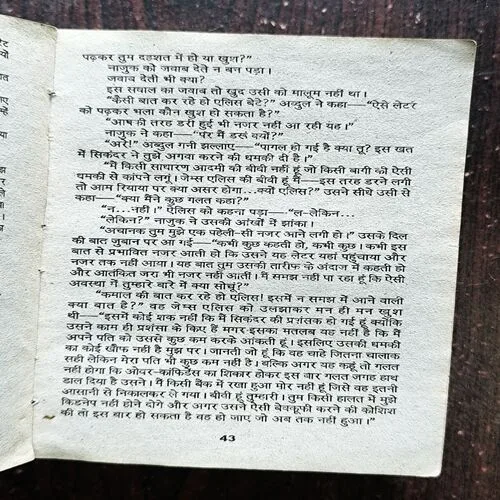 पढ़कर तुम दहशत में हो या खुश?"
नाजुक को जवाब देते न बन पड़ा।
जवाब देती भी क्या?
इस सवाल का जवाब तो खुद उसी को मालूम नहीं था।
"कैसी बात कर रहे हो एलिस बेटे?" अब्दुल ने कहा—"ऐसे लेटर
को पढ़कर भला कौन खुश हो सकता है?"
"आपकी तरह डरी हुई भी नजर नहीं आ रही यह।"
नाजुक ने कहा—"पर मैं डरूं क्यों?"
"अरे!" अब्दुल गनी झल्लाए—"पागल हो गई है क्या तू? इस खत
में सिकंदर ने तुझे अगवा करने की धमकी दी है।"
"मैं किसी साधारण आदमी की बीवी नहीं हूं जो किसी बागी की ऐसी
धमकी से कांपने लगूं। जेम्स एलिस की बीवी हूं मैं—इस तरह डरने लगी
तो आम रियाया पर क्या असर होगा...क्यों एलिस?" उसने सीधे उसी से
कहा—"क्या मैंने कुछ गलत कहा?"
"न...नहीं।" ऐलिस को कहना पड़ा—"ल-लेकिन..."
"लेकिन?" नाजुक ने उसकी आंखों में झांका।
"अचानक तुम मुझे एक पहेली-सी नजर आने लगी हो।" उसके दिल
की बात जुबान पर आ गई—"कभी कुछ कहती हो, कभी कुछ। कभी इस
बात से प्रभावित नजर आती हो कि उसने यह लेटर यहां पहुंचाया और
नजर तक नहीं आया। यह बात तुम उसकी तारीफ के अंदाज में कहती हो
और आतंकित जरा भी नजर नहीं आतीं। मैं समझ नहीं पा रहा हूं कि ऐसी
अवस्था में तुम्हारे बारे में क्या सोचूं?"
"कमाल की बात कर रहे हो एलिस! इसमें न समझ में आने वाली
क्या बात है?" वह जेम्स एलिस को उलझाकर मन ही मन खुश
थी—"इसमें कोई शक नहीं कि मैं सिकंदर की प्रशंसक हो गई हूं क्योंकि
उसने काम ही प्रशंसा के किए हैं मगर इसका मतलब यह नहीं है कि मैं
अपने पति को उससे कुछ कम करके आंकती हूं। इसलिए उसकी धमकी
का कोई खौफ नहीं है मुझ पर। जानती जो हूं कि वह चाहे जितना चालाक
सही लेकिन मेरा पति भी कुछ कम नहीं है। बल्कि अगर यह कहूं तो गलत
नहीं होगा कि ओवर-कांफिडेंस का शिकार होकर इस बार गलत जगह हाथ
डाल दिया है उसने। मैं किसी बैंक में रखा हुआ मोर नहीं हूं जिसे वह इतनी
आसानी से निकालकर ले गया। बीवी हूं तुम्हारी। तुम किसी हालत में मुझे
किडनेप नहीं होने दोगे और अगर उसने ऐसी बेवकूफी करने की कोशिश
की तो इस बार हो सकता है वह हो जाए जो अब तक नहीं हुआ।"
43